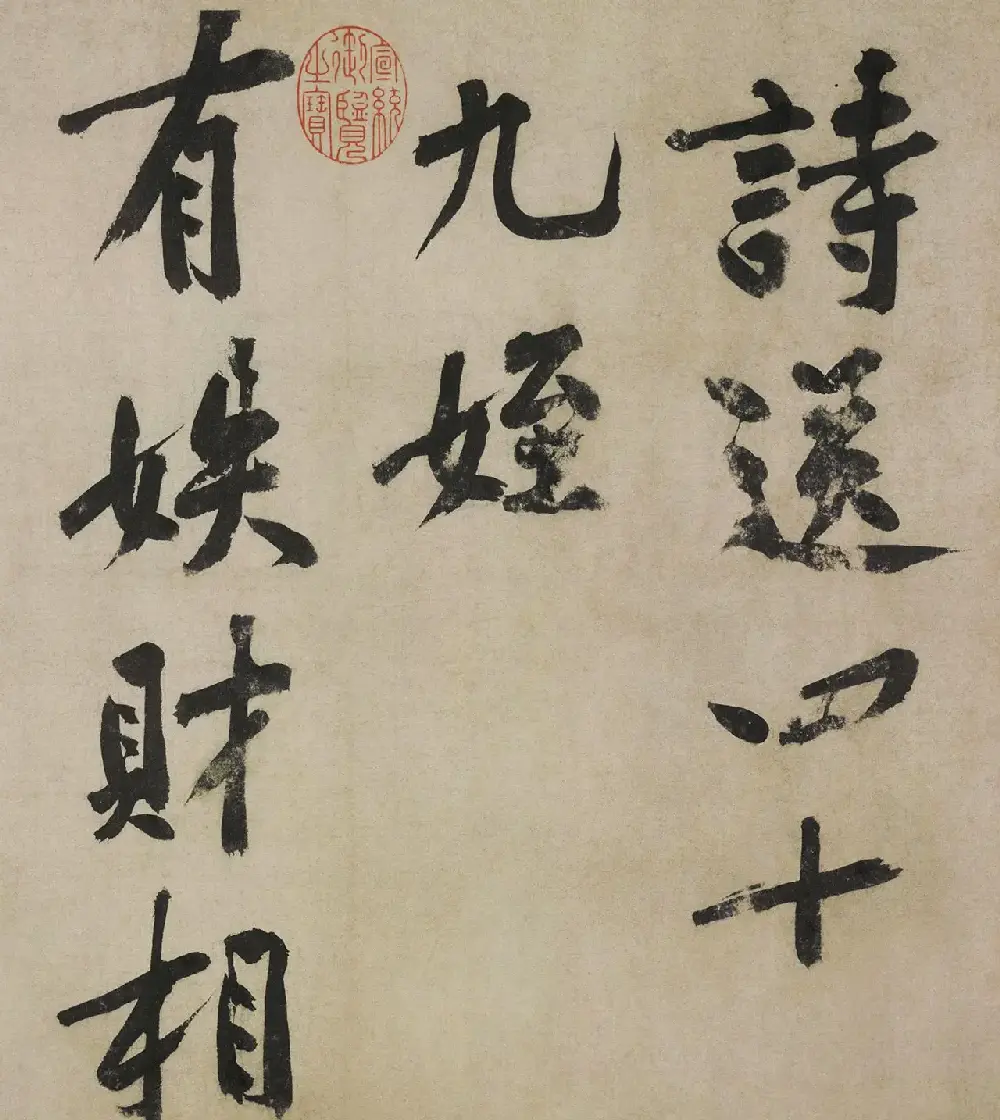 詩送四十
九姪
有娛財相
宣統御覽之寶